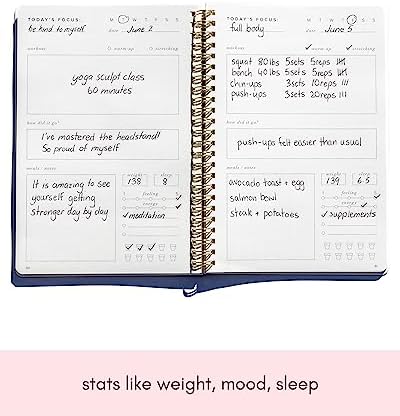 TODAY'S FOCUS: M T W T F S S
be kind to myself date June 2
workout warm-up stretching
yoga sculpt class
60 minutes
how did it go?
I've mastered the headstand!
So proud of myself
meals / notes weight sleep
138 8
It is amazing to see
yourself getting
stronger day by day
feeling
energy
meditation
TODAY'S FOCUS: M T W T F S S
full body date June 5
workout warm-up stretching
squat 80 lbs 5sets 5reps
bench 40 lbs 5sets 5reps
chin-ups 3sets 10reps
push-ups 3sets 20reps
how did it go?
push-ups felt easier than usual
meals / notes weight sleep
139 6.5
avocado toast + egg
salmon bowl
steak + potatoes
feeling
energy
supplements
stats like weight, mood, sleep